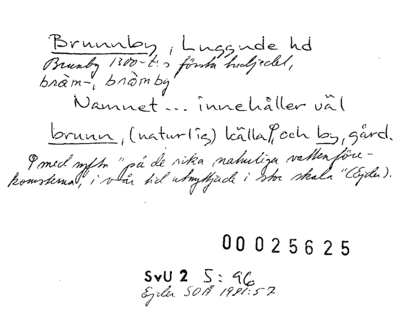 Brunnby, Luggude hd
Brunby 1300-t:s första hudjedel,
bròm-, bròmby
Namnet... innehåller väl
brunn, (naturlig) källa φ, och by, gård.
φ med syftn "på de rika, naturliga vattenföre-
komsterna, i vår tid utnyttjade i stor skala" (Ejder).
00025625
SvU 2 5: 96
Ejder SOÅ 1981:57